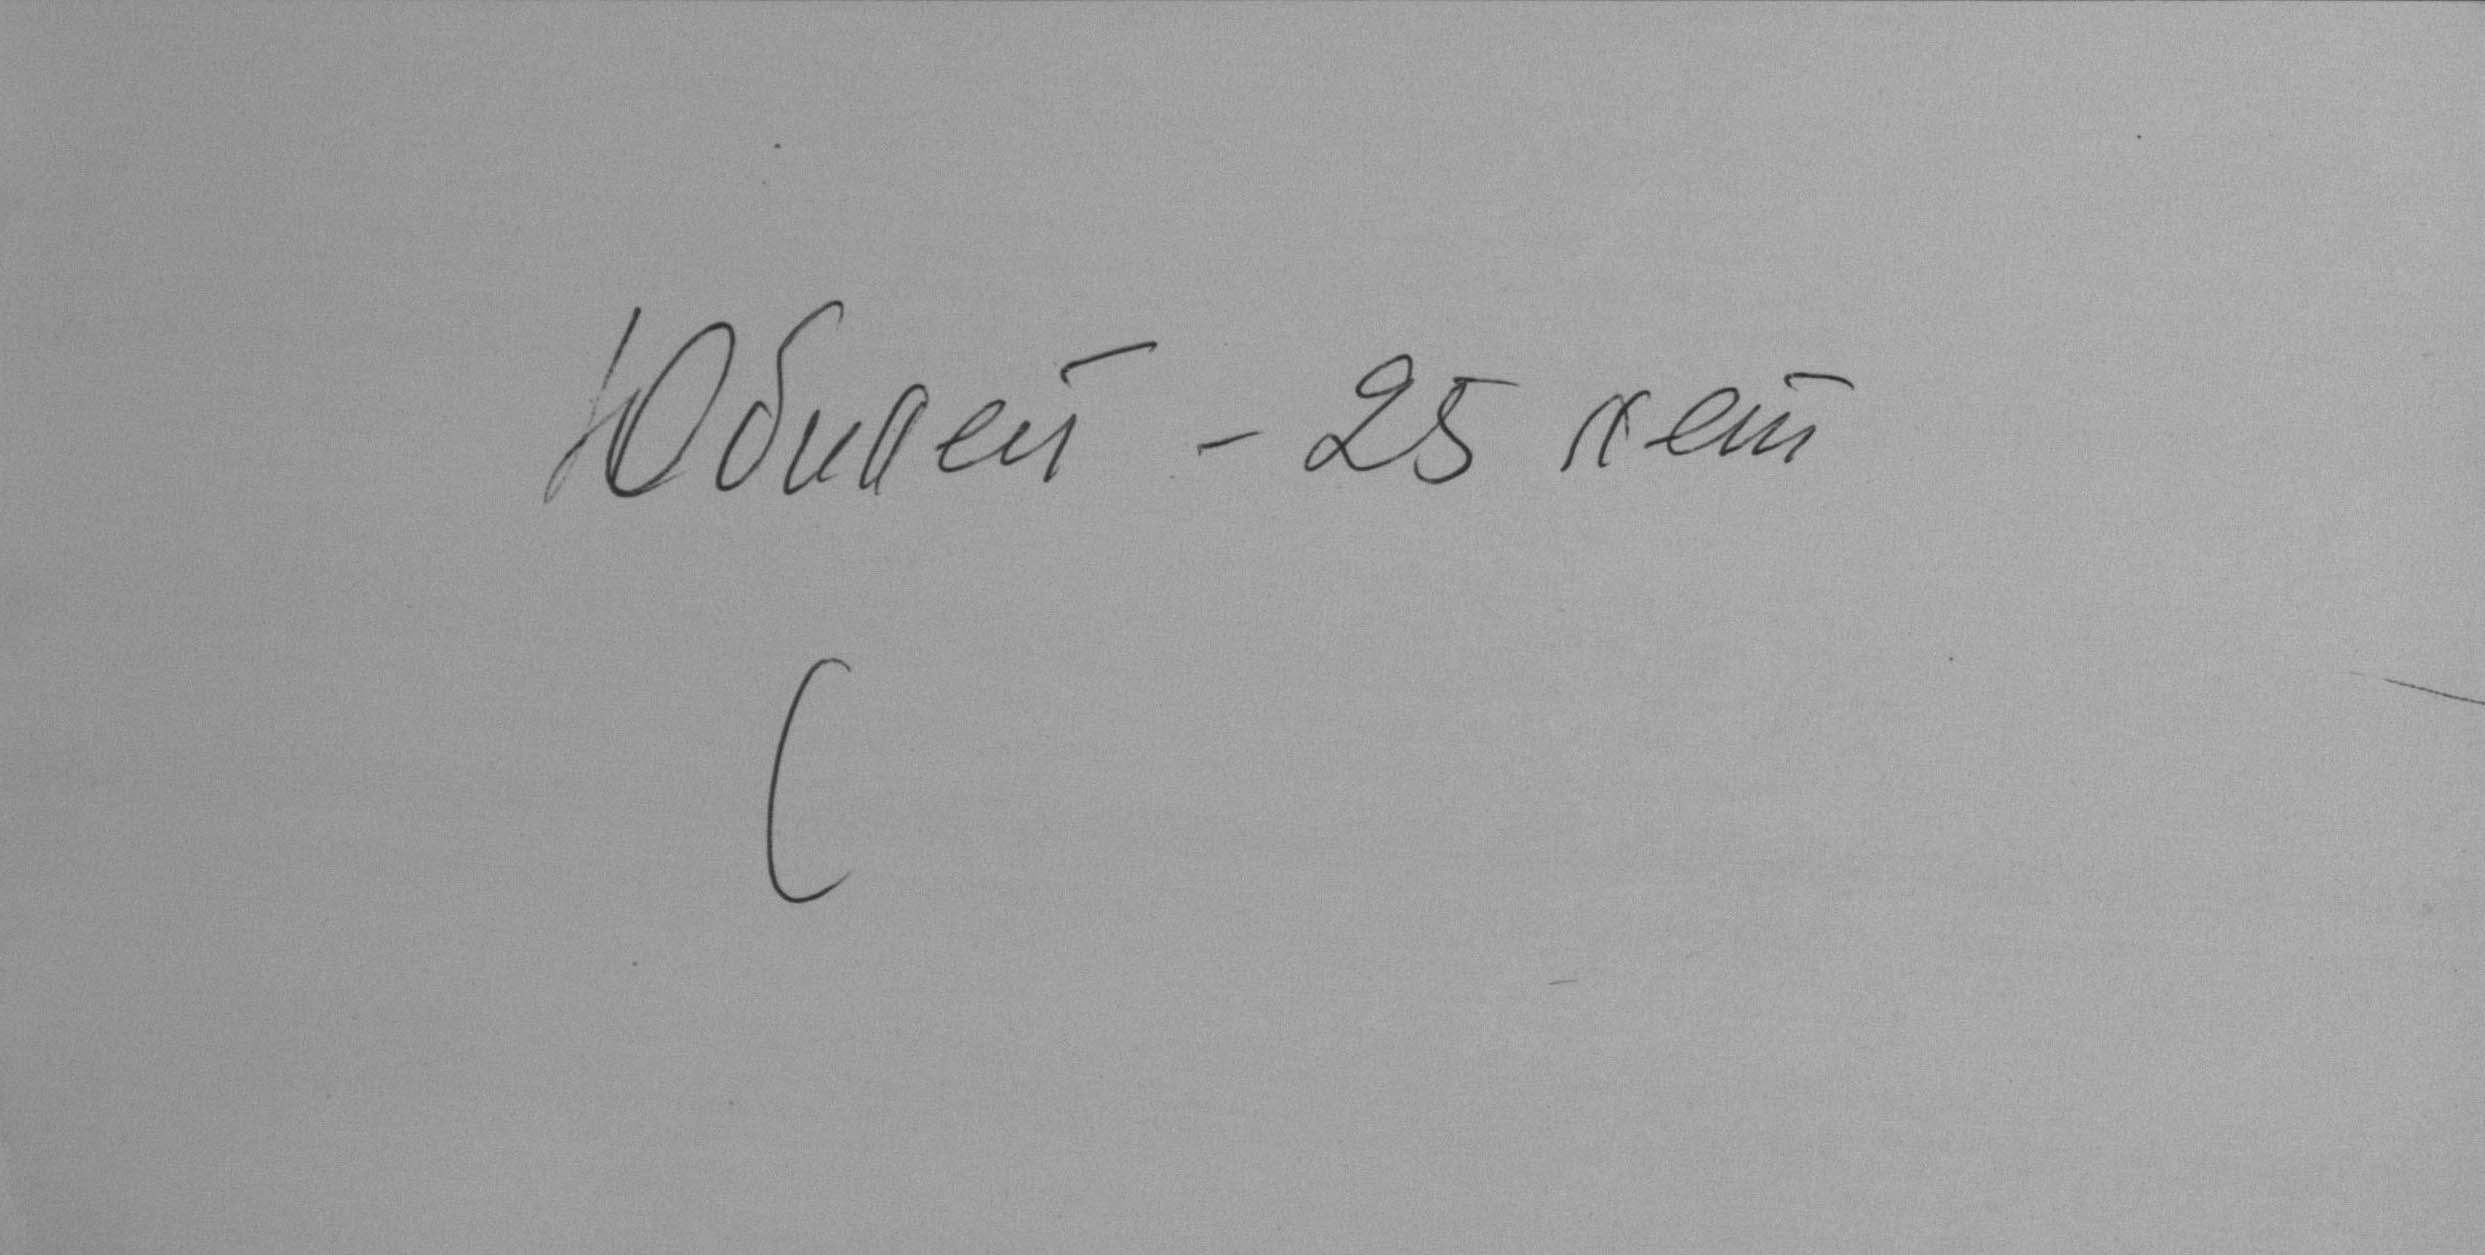 Юбилей - 25 лет
(